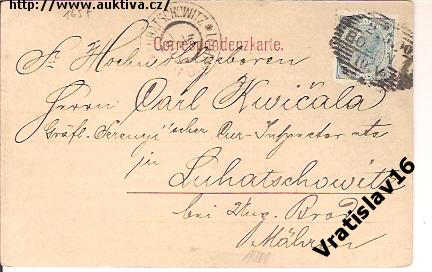 http://www.auktiva.cz/
1638
Correspondenzkarte.
Sr Hochwolgeboren
Herrn Carl Kwičala
Gräfl. Serenyi'scher Cur-Inspector etc
in
Luhatschowitz
bei Ung. Brod
Mähren
Vratislav16